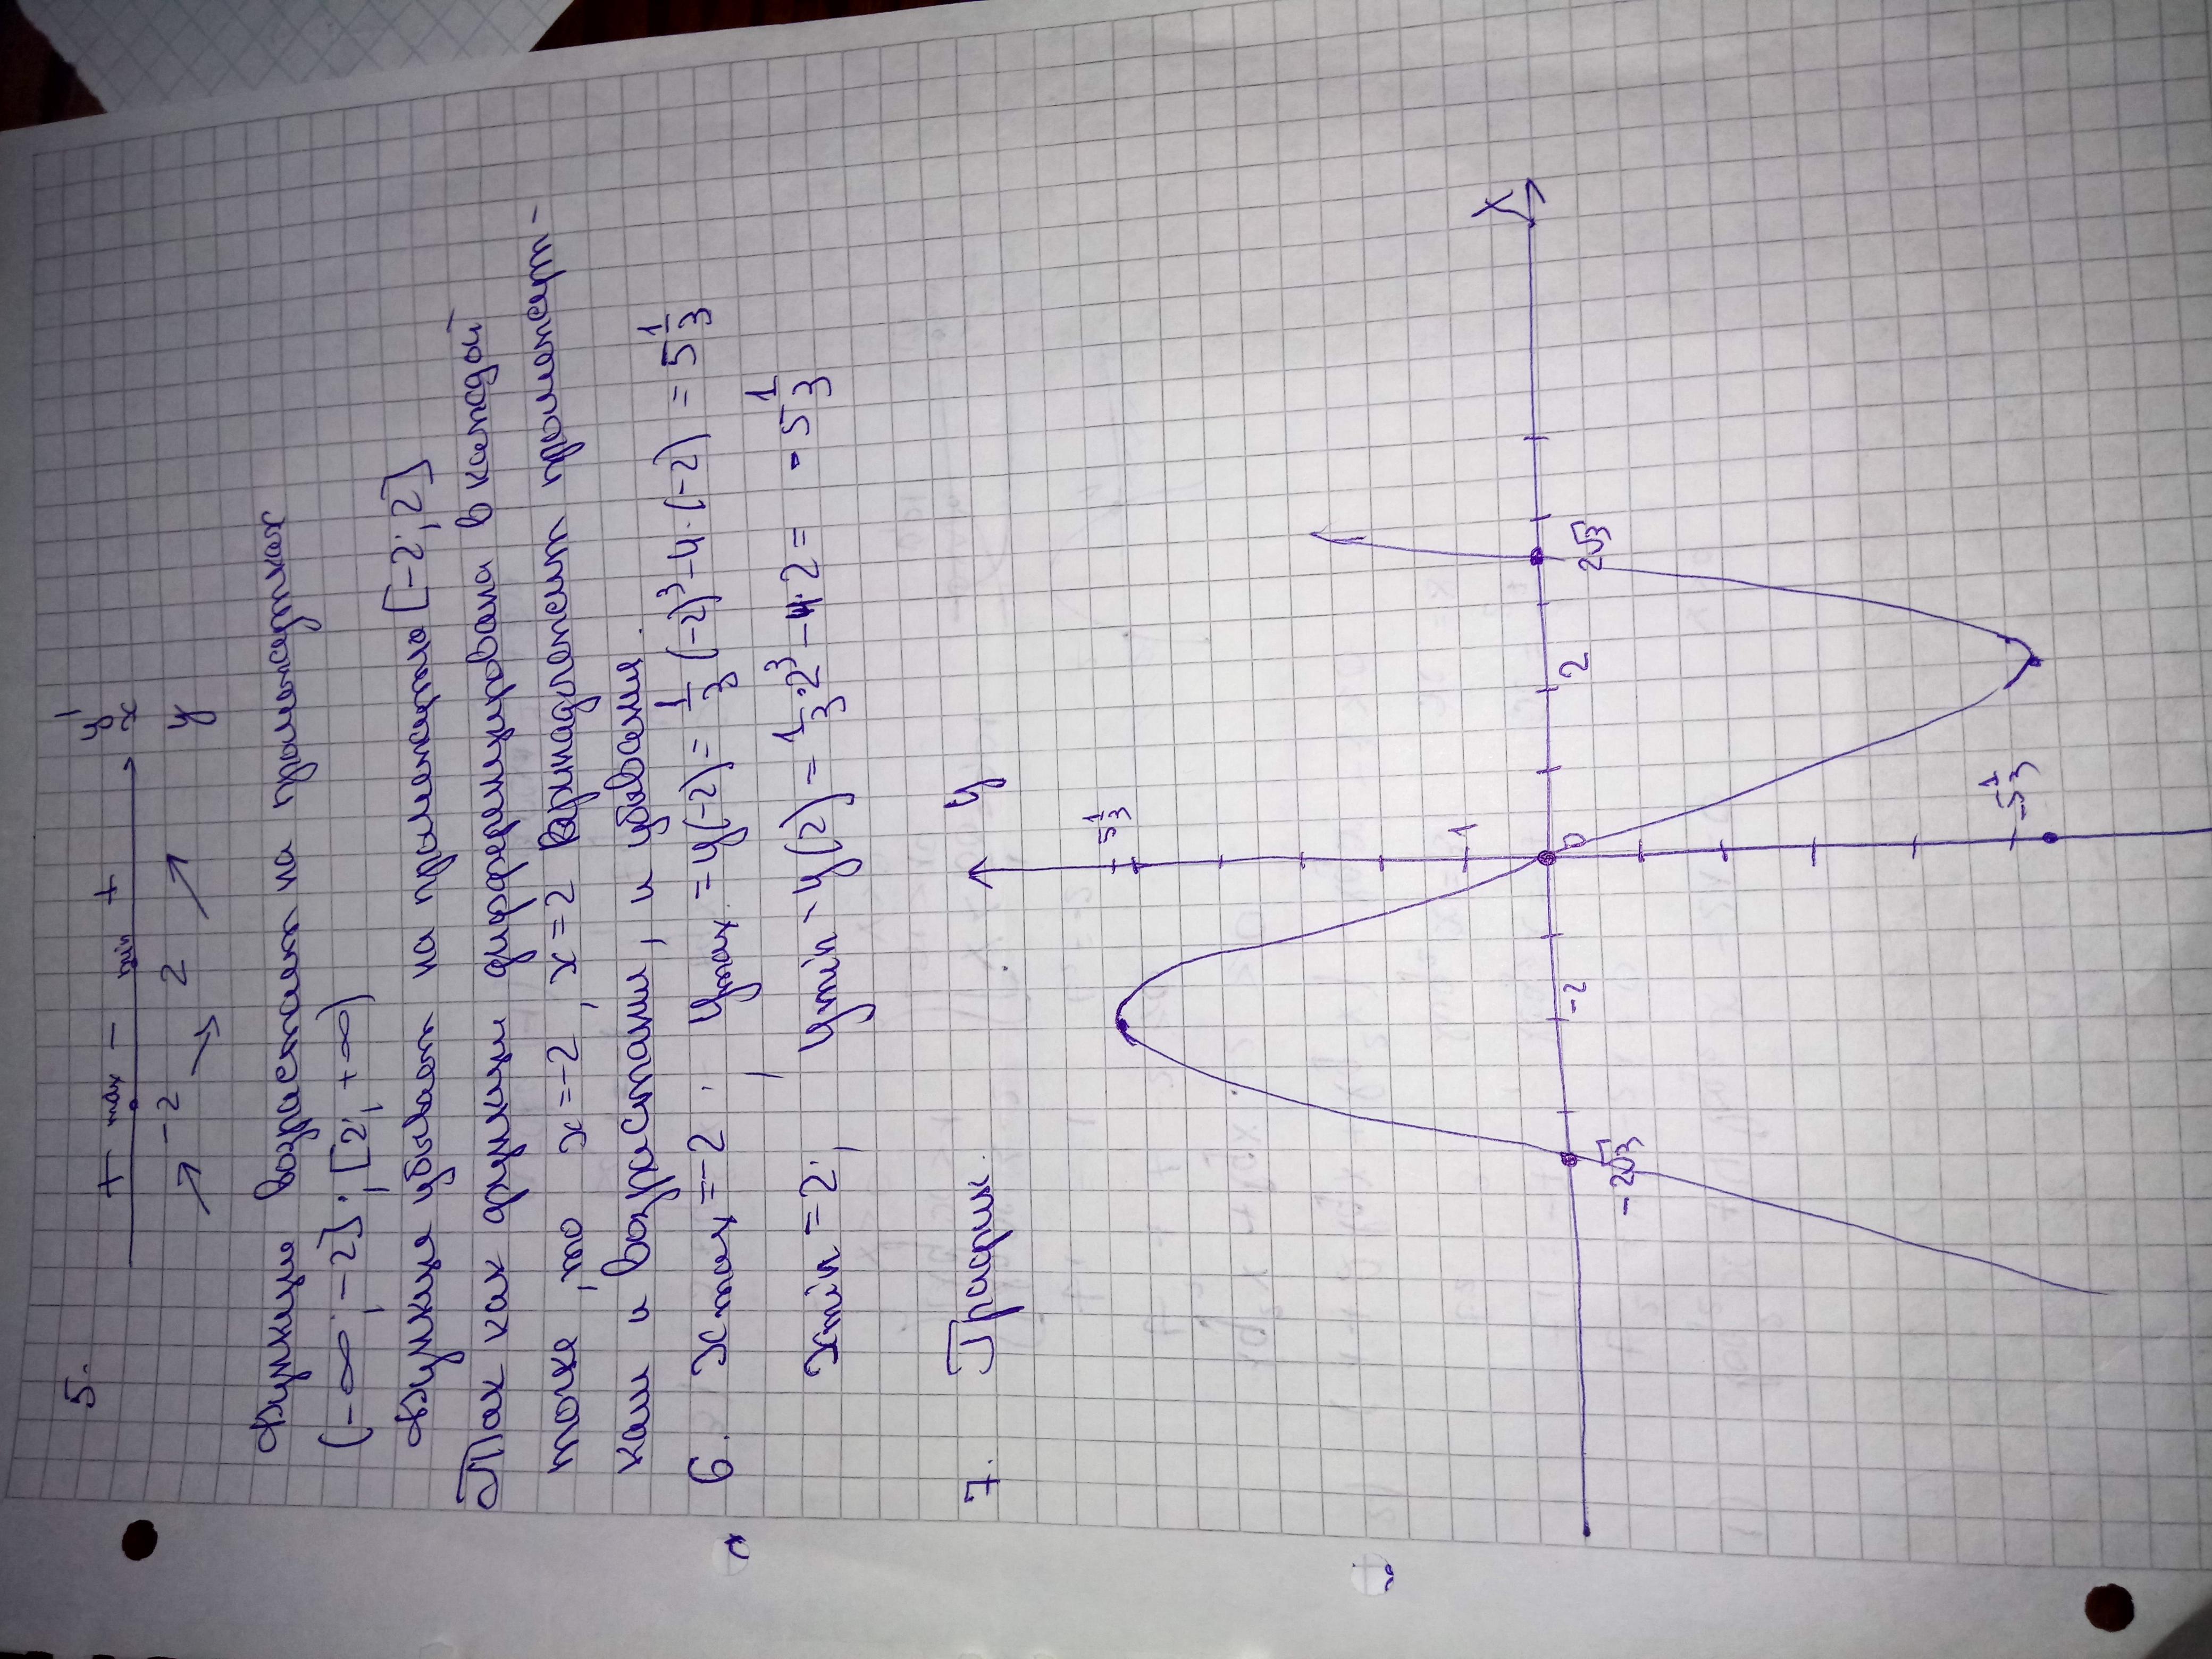 5.
+ max - min + y'
-2 2 x
↗ ↘ ↗ y
Функция возрастает на промежутках
(-∞; -2]; [2; +∞)
Функция убывает на промежутке [-2; 2]
Так как функции дифференцирована в каждой
точке, то x=-2, x=2 принадлежит промежут-
кам и возрастании, и убывания.
6. xmax=-2; ymax = y(-2) = 1/3 (-2)³-4·(-2) = 5 1/3
xmin=2; ymin - y(2) = 1/3·2³-4·2= -5 1/3
7. График.
y
5 1/3
1
X
-2√3 -2 0 2 2√3
-5 1/3